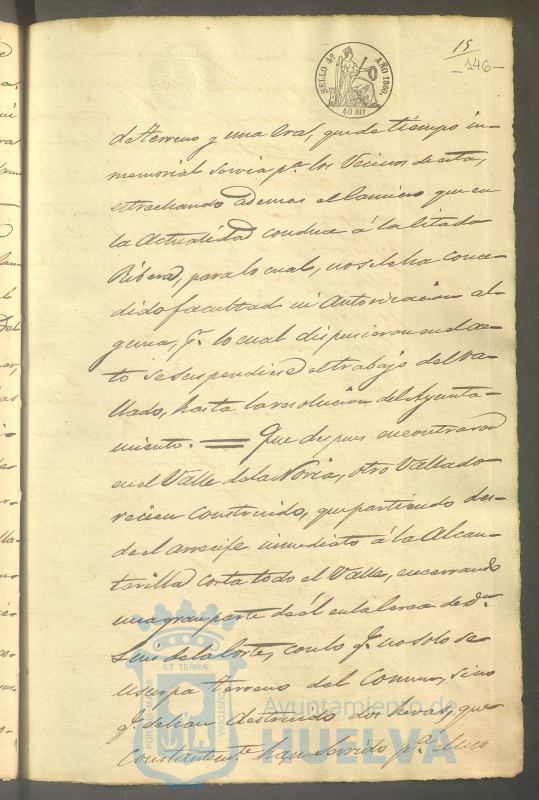 15
-146-
SELLO 4º AÑO 1860.
40 Ms
de terreno y una Era, que de tiempo in-
memorial servia pª los Vecinos de esta,
estrechando ademas el Camino que en
la Actualidad conduce á la citada
Ribera, para lo cual, no se le ha conce-
dido facultad ni Autorizacion al-
guna, pr lo cual dispusieron en el ac-
to se suspendiese el trabajo del Va-
llado, hasta la resolucion del Ayunta-
miento. = Que despues encontraron
en el Valle de la Noria, otro Vallado
recien Construido, que partiendo des-
de el arrecife inmediato á la Alcan-
tarilla corta todo el Valle, encerrando
una gran parte de él en la cerca de Dn
Luis de la Corte, con lo qe no solo se
usurpa terreno del Comun, sino
qe se han destruido dos heras, que
Constantemte han Servido pª el uso
PORTUS MARIS ET TERRÆ CUSTODIA
Ayuntamiento de
HUELVA